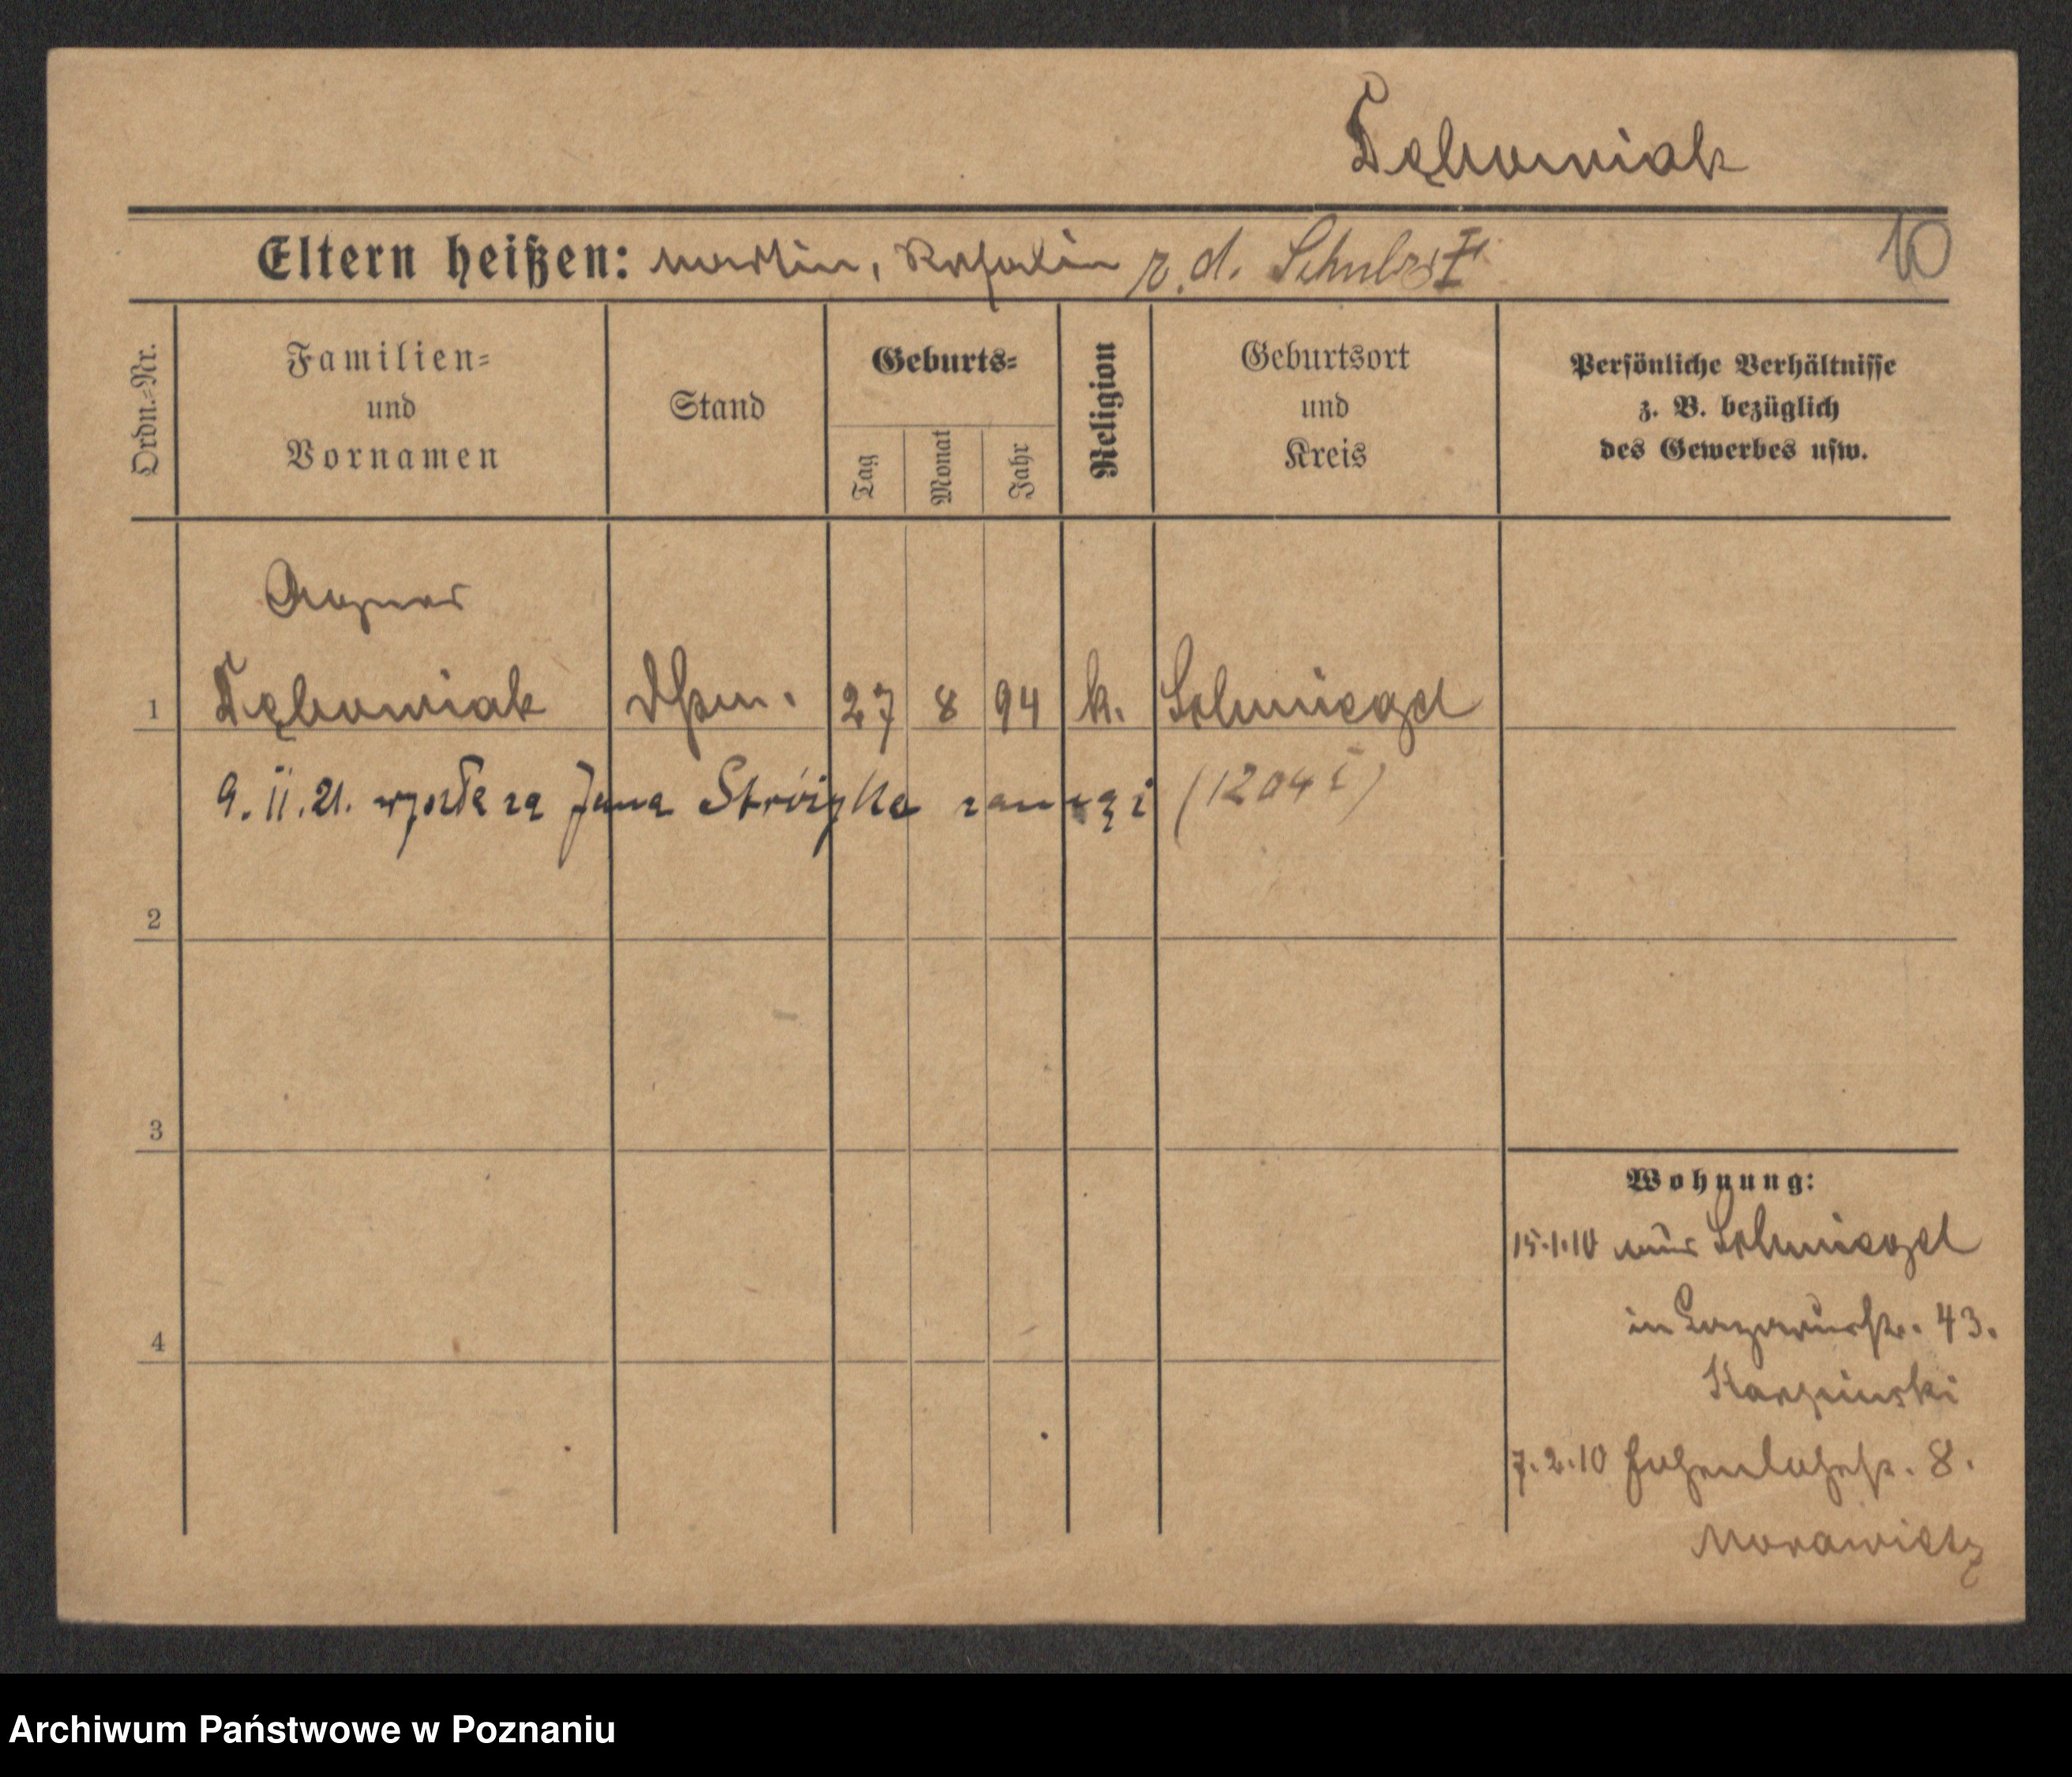 Dębowiak
Eltern heißen: Martin, Rosalie z. d. Schubert
10
Ordn.-Nr.
Familien-
und
Vornamen
Stand
Geburts-
Tag
Monat
Jahr
Religion
Geburtsort
und
Kreis
Persönliche Verhältnisse
z. B. bezüglich
des Gewerbes usw.
Agnes
1 Dębowiak Dstm. 27 8 94 k. Schmiegel
9.11.21. wyszła za Jana Stróżyka zamąż (1204
2
3
4
Wohnung:
15.1.10 aus Schmiegel
in Lazarusstr. 43.
Karpinski
7.2.10 Hohenlohestr. 8.
Morawietz
Archiwum Państwowe w Poznaniu